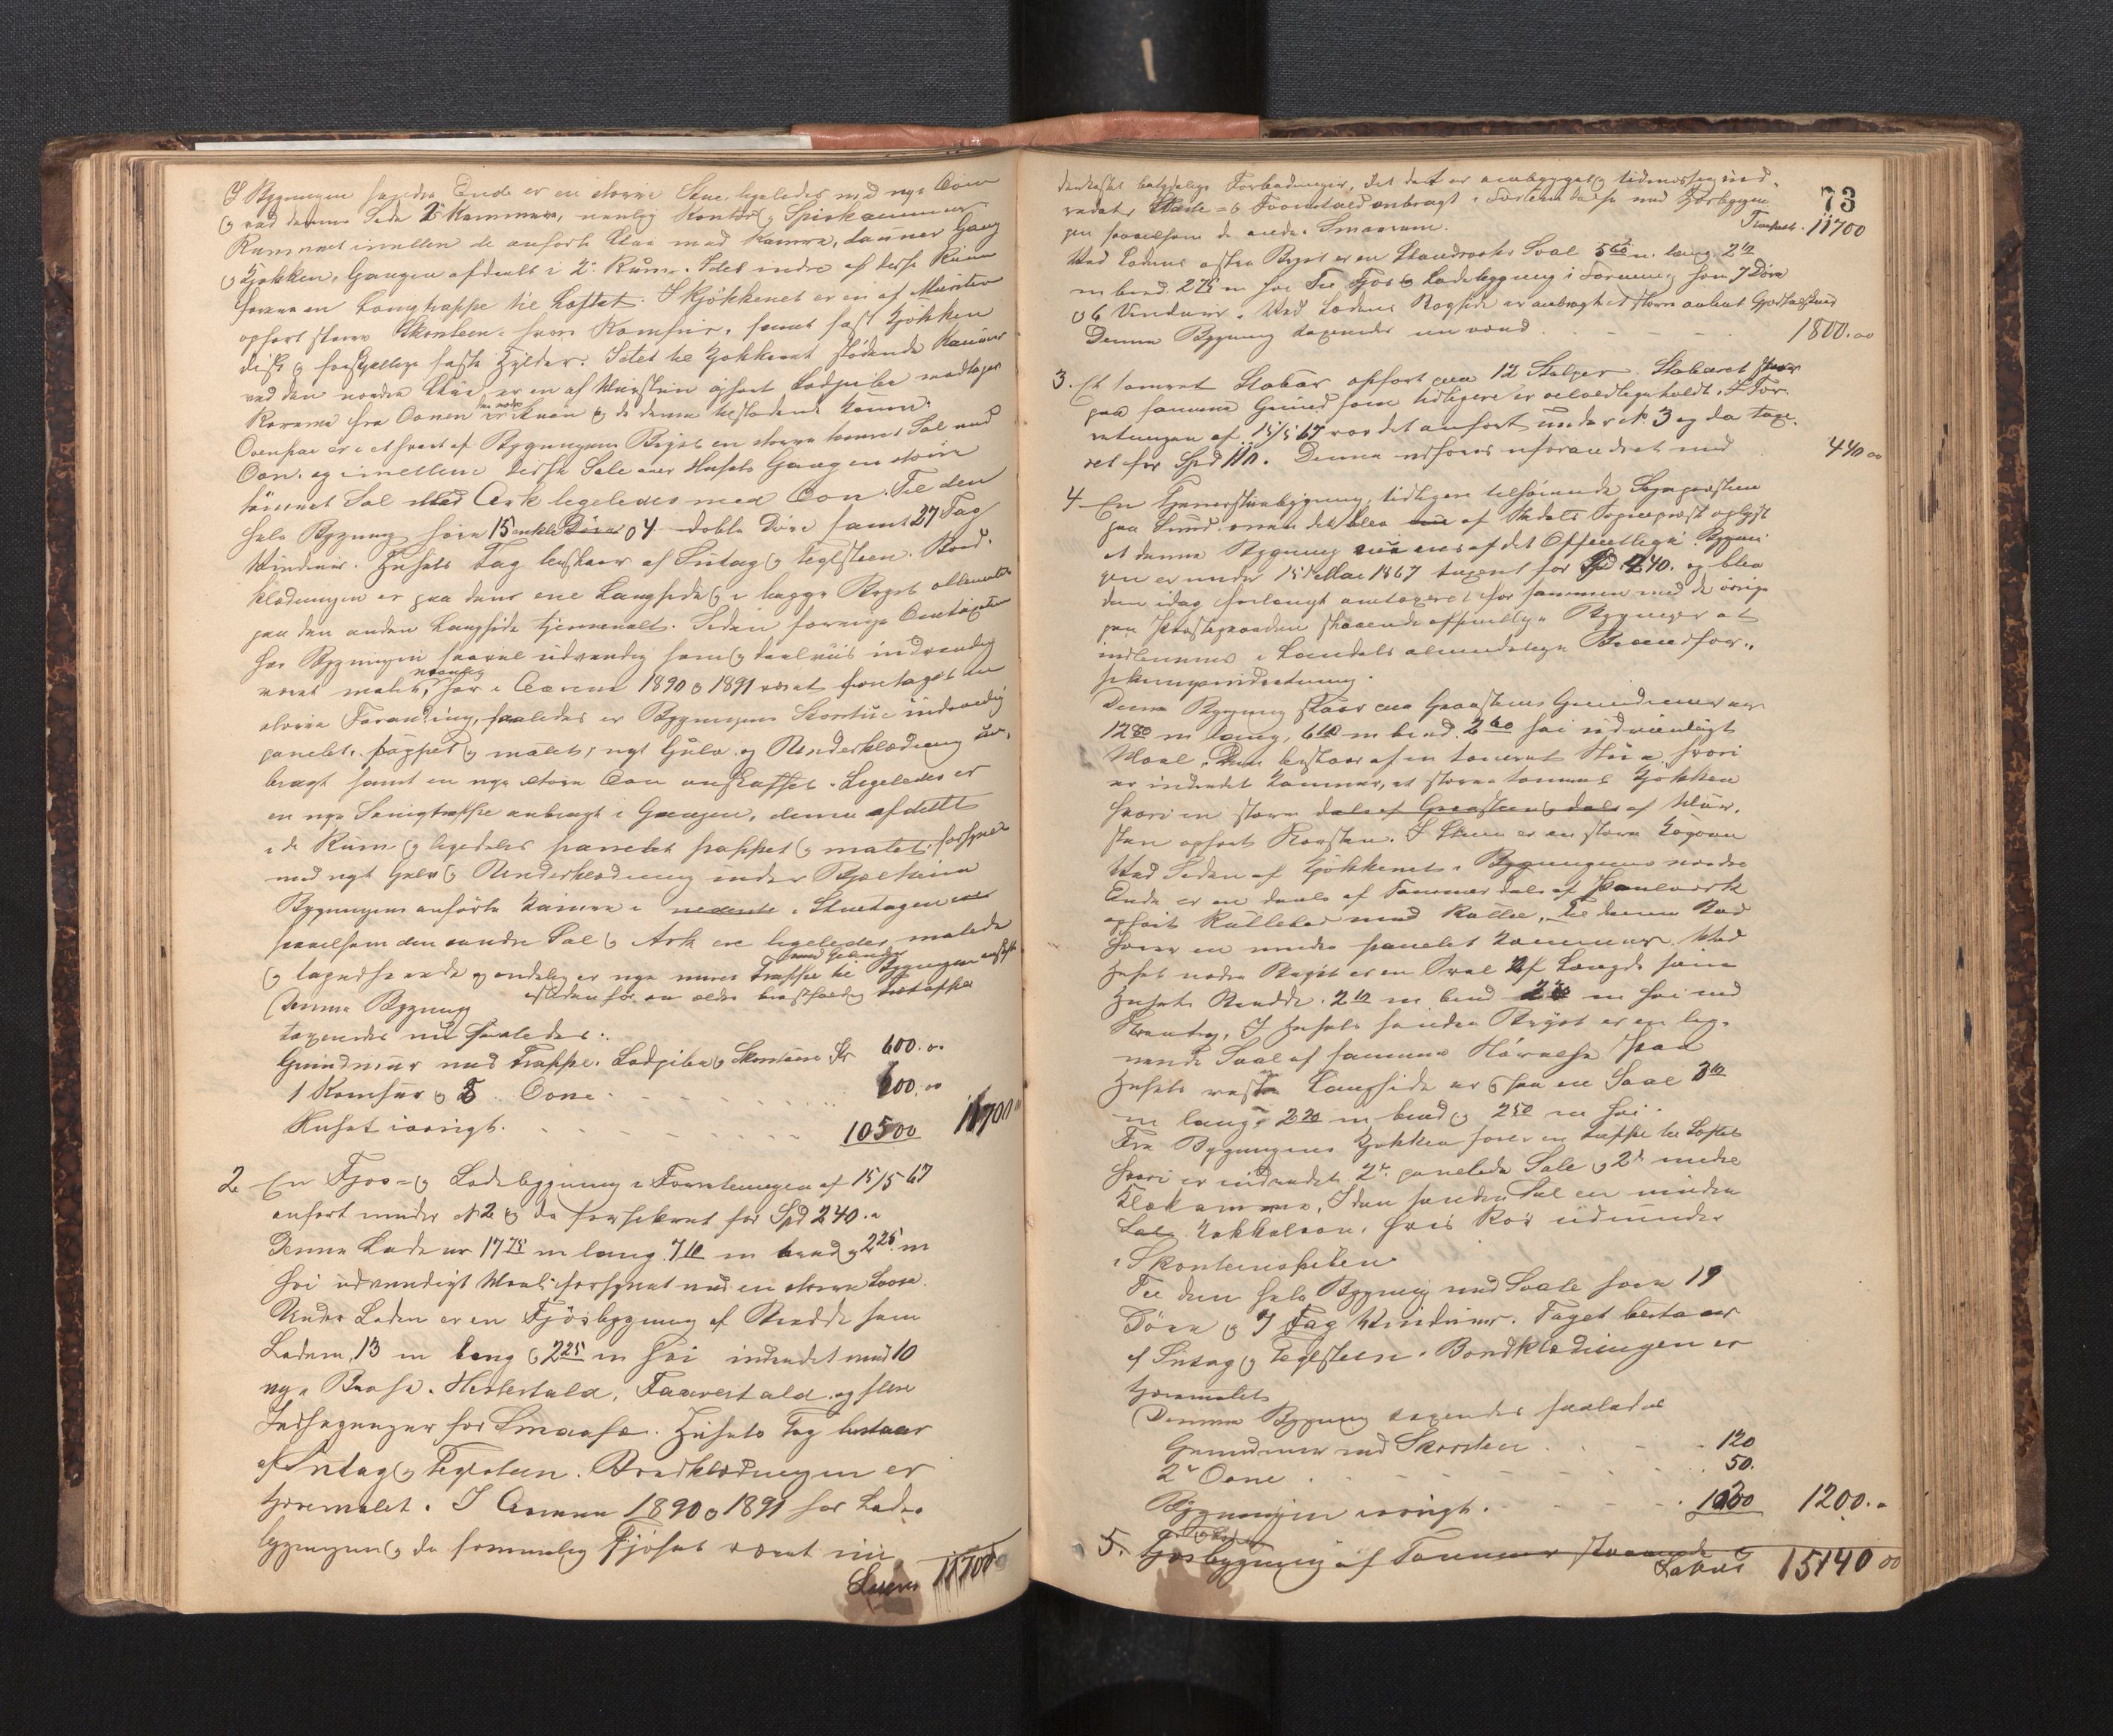 I Bygningens søndre Ende er en større Stue ligeledes med nye Ovn
og ved denne Side 2 Kammere, nemlig Kontor og Spiskammer.
Rummet imellem de anførte Stuer med Kamre, danner Gang
og Kjøkken, Gangen afdeelt i 2 Rum. I det indre af disse Rum
fører en Langtrappe til Loftet. I Kjøkkenet er en af Mursten
opført større Skorsteen, hvori Komfur, samt fast Kjøkken
disk og forskjellige faste Hylder. I det til Kjøkkenet stødende Kammer
ved den nordre Stue er en af Mursten opført Lodpibe modtager
Rørene fra Ovnen i Stuen og de denne tilstødende Kamre.
Ovenpaa er i ethvert af Bygningens Bryst en større tømret Sal med
Ovn. og imellem disse Sale over Husets Gang en større
tømret Sal med Ark ligeledes med Ovn. Til den
hele Bygning høre 15 enkle Døre og 4 doble Døre samt 27 Fag
Vinduer. Husets Tag bestaar af Sutag og Teglsteen. Bord-
klædningen er paa dens ene Langside og i begge Bryst oliemalet
paa den anden Langside tjæremalt. Siden forrige Omtaxation
har Bygningen saavel udvendig som og deelviis indvendig
været malet, har i Aarene 1890 og 1891 været foretaget en
større Forandring, saaledes er Bygningens Storstue indvendig
panelet, pappet og malet, nyt Gulv og Underklædning an-
bragt samt en nye større Ovn anskaffet. Ligeledes er
en nye Svingtrappe anbragt i Gangen, denne afdeelt
i de Rum og ligeledes panelet pappet og malet, forsynet
med nyt Gulv og Underklædning under Bjelkerne
Bygningens anførte Kamre i nederste Stuetagen
saavelsom den søndre Sal og Ark ere ligeledes malede
og tapetserede og endelig er nye murer Trappe med Gelender til Bygningen
istedenfor en ældre brøstfældig Trætrappe
Denne Bygning
taxeredes nu saaledes:
Grundmur med Trappe, Lodpibe og Skorsteen Kr 600.00
1 Komfur og 8 Ovne 600.00
Huset iøvrigt. 10500 11700
2 En Fjøs- og Ladebygning i Forretningen af 15/5 67
anført under № 2 og da forsikret for Spd 240.
Denne Lade er 17 75 m lang 7 10 m bred og 2 25 m
høi udvendigt Maal forsynet med en større Loose.
Under Laden er en Fjøsbygning af Bredde som
Laden, 13 m lang og 2 25 m høi indredet med 10
nye Baase. Hestestald, Faarestald og flere
Indhegninger for Smaafæ. Husets Tag bestaar
af Sutag og Teglsteen. Bordklædningen er
tjæremalet. I Aarene 1890 og 1891 har Lade-
bygningen og da fornemmelig Fjøset været un-
Lateris 11700
73
derkastet betydelige Forbedringer, idet det er ombygget og tidsmæssig ind-
redet. Heste- og Faarestald anbragt i Forbindelse med Hovedbygnin-
gen saavelsom de andre Smaarum. Transport. 11700
Ved Ladens østre Bryst er en Standværks Sval 5 60 m. lang 2 10
m bred 2 75 m høi Til Fjøs og Ladebygning i Forening høre 7 Døre
og 6 Vinduer. Ved Ladens Bagside er anbragt et større aabent Gjødselskuur
Denne Bygning taxeredes nu med 1800.00
3. Et tømret Stabur opført paa 12 Stolper. Staburet staar
paa samme Grund som tidligere er velvedligeholdt. I For-
retningen af 15/5 67 var det anført under № 3 og da taxe-
ret for Spd 110. Denne ansees uforandret med 440 00
4 En Tjenerstuebygning, tidligere tilhørende Sognepræsten
paa Sund. men det blev af Stedets Sognepræst oplyst
at denne Bygning nu eies af det Offentlige. Bygnin-
gen er under 15 Mai 1867 taxeret for Spd 240. og blev
den idag forlangt omtaxeret for sammen med de øvrige
paa Præstegaarden staaende offentlige Bygninger at
indlemmes i Landets almindelige Brandfor-
sikringsindretning.
Denne Bygning staar paa Graasteens Grundmur er
12 80 m lang, 6 10 m bred. 2 60 høi udvendigt
Maal. Den bestaar af en tømret Stue, hvori
er indredet Kammer, et større tømret Kjøkken
hvori en større dels af Graasteen og dels af Mur-
steen opført Skorsten. I Stuen er en større Kogovn
Ved Siden af Kjøkkenet i Bygningens nordre
Ende er en deels af Tømmer dels af Panelværk
opført Rullebod med Rulle, til denne Bod
hører en mindre panelet Kammer. Ved
Husets nordre Bryst er en Sval af Længde som
Husets Bredde. 2 10 m bred 2 20 m høi med
Tværtag. I Husets søndre Bryst er en lig-
nende Sval af samme Størrelse Paa
Husets vestre Langside er og saa en Sval 3 10
m lang, 2 20 m bred og 2 50 m høi.
Fra Bygningens Kjøkken fører en Trappe til Loftet
hvori er indredet 2 panelede Sale og 2 mindre
Klækamre, I den søndre Sal en mindre
Sals Kakkelovn, hvis Rør udmunder
i Skorstenspiben
Til den hele Bygning med Svale høre 19
Døre og 7 Fag Vinduer. Taget bestaar
af Sutag og Teglsteen. Bordklædningen er
tjæremalet
Denne Bygning taxeredes saaledes
Grundmur med Skorsten 120
2 Ovne 50.
Bygningen iøvrigt. 1030 1200.
5. Fjøsbygning af Tømmer staaende
Lateris 15140 00